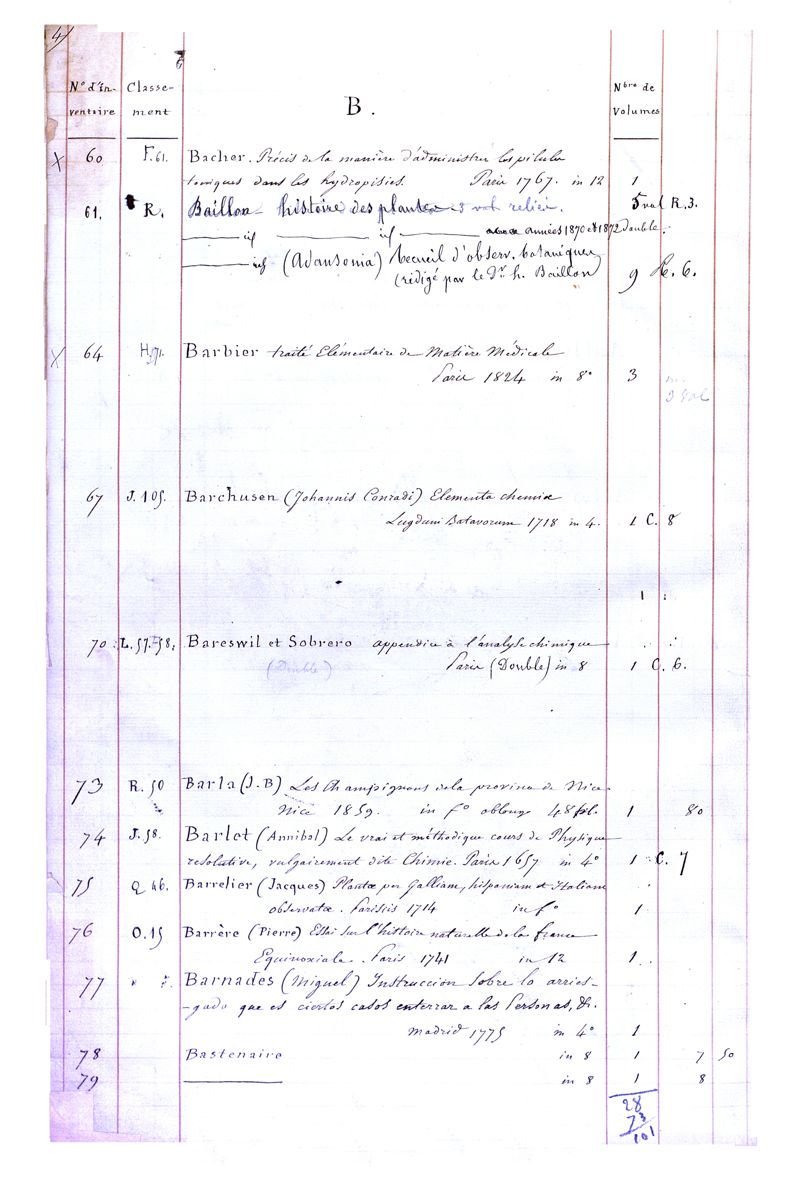 4)
N° d'In- Classe- Nbre de
ventaire ment B. Volumes
X 60 F.61. Bacher. Précis de la manière d'administrer les pilules
toniques dans les hydropisies. Paris 1767. in 12 1
61. R. Baillon histoire des plantes 5 vol. reliés. 5 vol R.3.
id id années 1870 et 1872 double.
id (Adansonia) Recueil d'observ. botaniques
(rédigé par le Dr. h. Baillon) 9 R. 6.
X 64 H.571. Barbier traité Elémentaire de Matière Médicale
Paris 1824 in 8° 3
3 vol
67 J. 105. Barchusen (Johannis Conradi) Elementa chemiæ
Lugduni Batavorum 1718 in 4. 1 C. 8
1 :
70 L. 57.58. Bareswil et Sobrero appendice à l'analyse chimique
(Double) Paris (Double) in 8 1 C. 6.
73 R. 50 Barla (J.B) Les Champignons de la province de Nice
Nice 1859. in f° oblong 48 pl. 1 80
74 J. 58. Barlet (Annibal) Le vrai et méthodique cours de Physique
resolutive, vulgairement dite Chimie. Paris 1657 in 4° 1 C. 7
75 Q 46. Barrelier (Jacques) Plantæ per Galliam, hispaniam et Italiam
observatæ. Parisiis 1714 in f° 1
76 O.15 Barrère (Pierre) Essai sur l'histoire naturelle de la france
Equinoxiale. Paris 1741 in 12 1.
77 " F. Barnades (Miguel) Instruccion Sobre lo arries-
-gado que es ciertos casos enterrar a las Personas, &.
Madrid 1775 in 4° 1
78 Bastenaire in 8 1 7 50
79 in 8 1 8
28
73
101